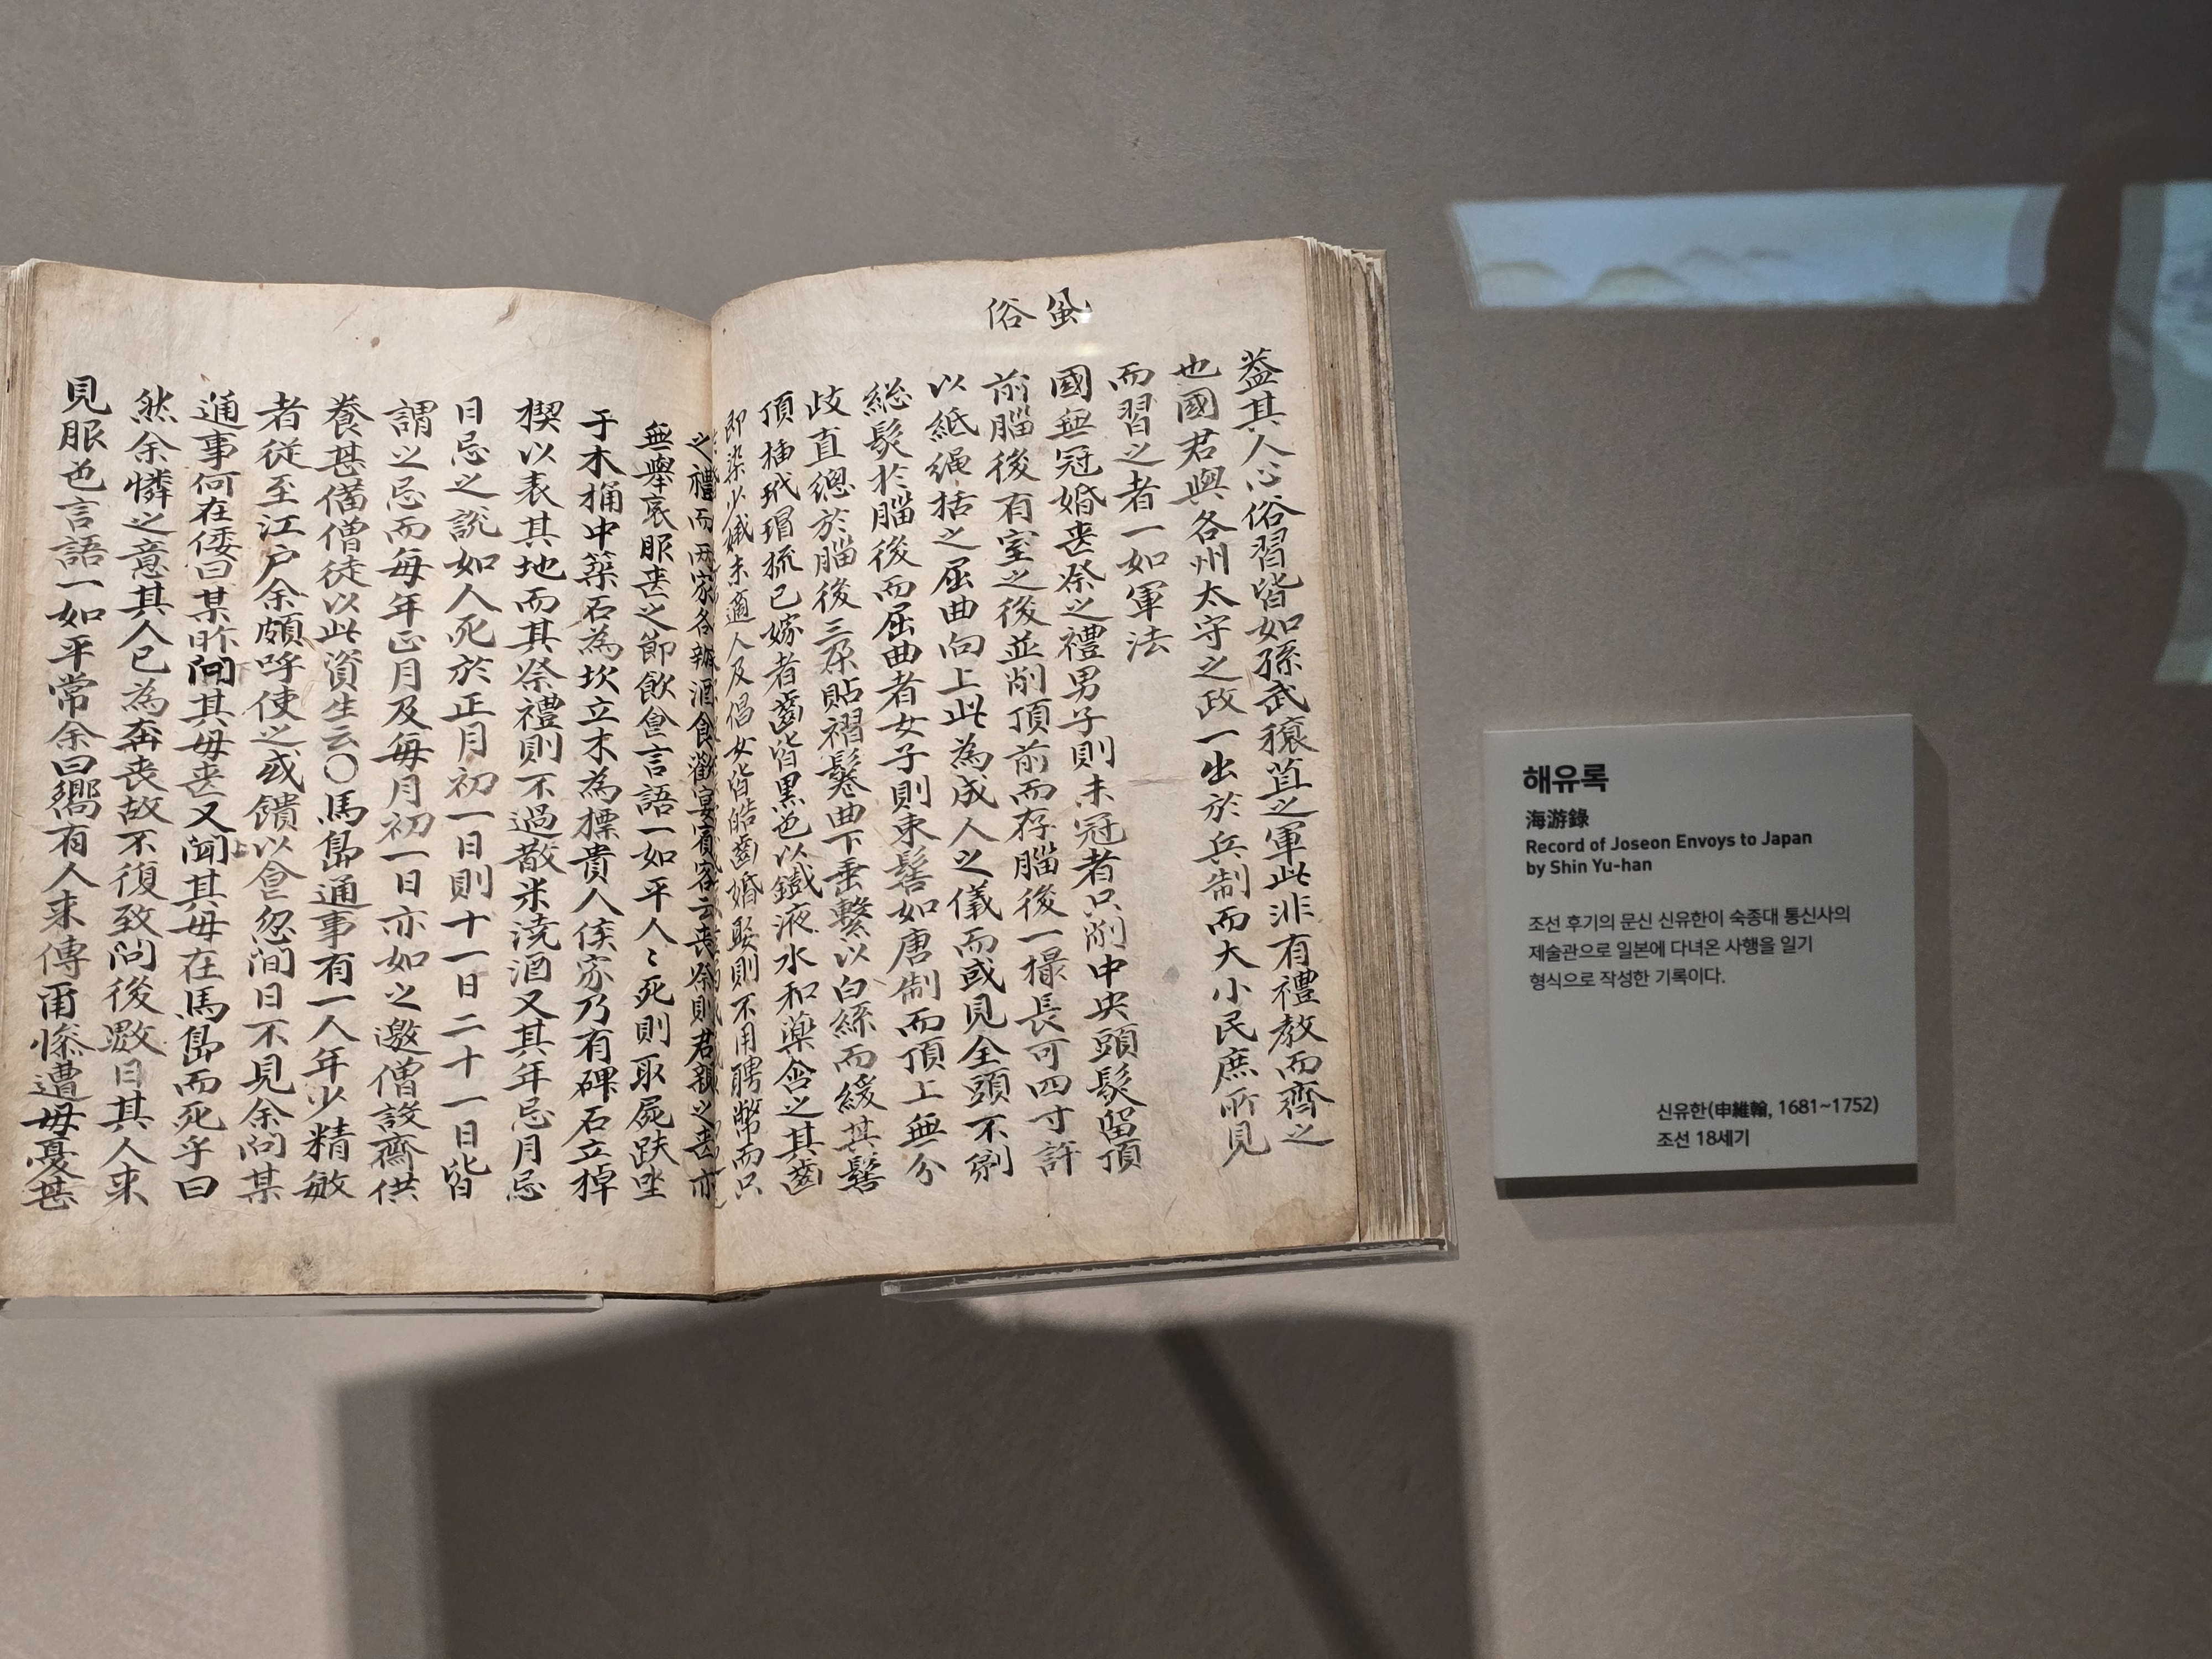 風俗
蓋其人心俗習皆如孫武穰苴之軍此非有禮教而齊之
也國君與各州太守之政一出於兵制而大小民庶所見
而習之者一如軍法
國無冠婚喪祭之禮男子則未冠者只削中央頭髮留頂
前腦後有室之後並削頂前而存腦後一撮長可四寸許
以紙繩括之屈曲向上此為成人之儀而或見全頭不剃
総髮於腦後而屈曲者女子則束髻如唐制而頂上無分
歧直總於腦後三朶貼褶鬈曲下垂繫以白絲而緩其髻
頂揷玳瑁梳已嫁者齒皆黑色以鐵液水和藥含之其齒
即染少娥未適人及倡女皆皓齒婚娶則不用聘幣而只
之禮而兩家各辦酒食歡宴賓客云喪祭則君親之喪亦
無擧哀服喪之節飮食言語一如平人〻死則取屍趺坐
于木桶中築石為坎立木為標貴人侯家乃有碑石立棹
楔以表其地而其祭禮則不過散米澆酒又其年忌月忌
日忌之說如人死於正月初一日則十一日二十一日皆
謂之忌而每年正月及每月初一日亦如之邀僧設齋供
養甚備僧徒以此資生云〇馬島通事有一人年少精敏
者從至江戶余頗呼使之或饋以食忽間日不見余問某
通事何在倭曰某昨聞其母喪又聞其母在馬島而死乎曰
然余憐之意其人已為奔喪故不復致問後數日其人來
見服色言語一如平常余曰嚮有人來傳甭慘遭母憂甚
해유록
海游錄
Record of Joseon Envoys to Japan
by Shin Yu-han
조선 후기의 문신 신유한이 숙종대 통신사의
제술관으로 일본에 다녀온 사행을 일기
형식으로 작성한 기록이다.
신유한(申維翰, 1681~1752)
조선 18세기